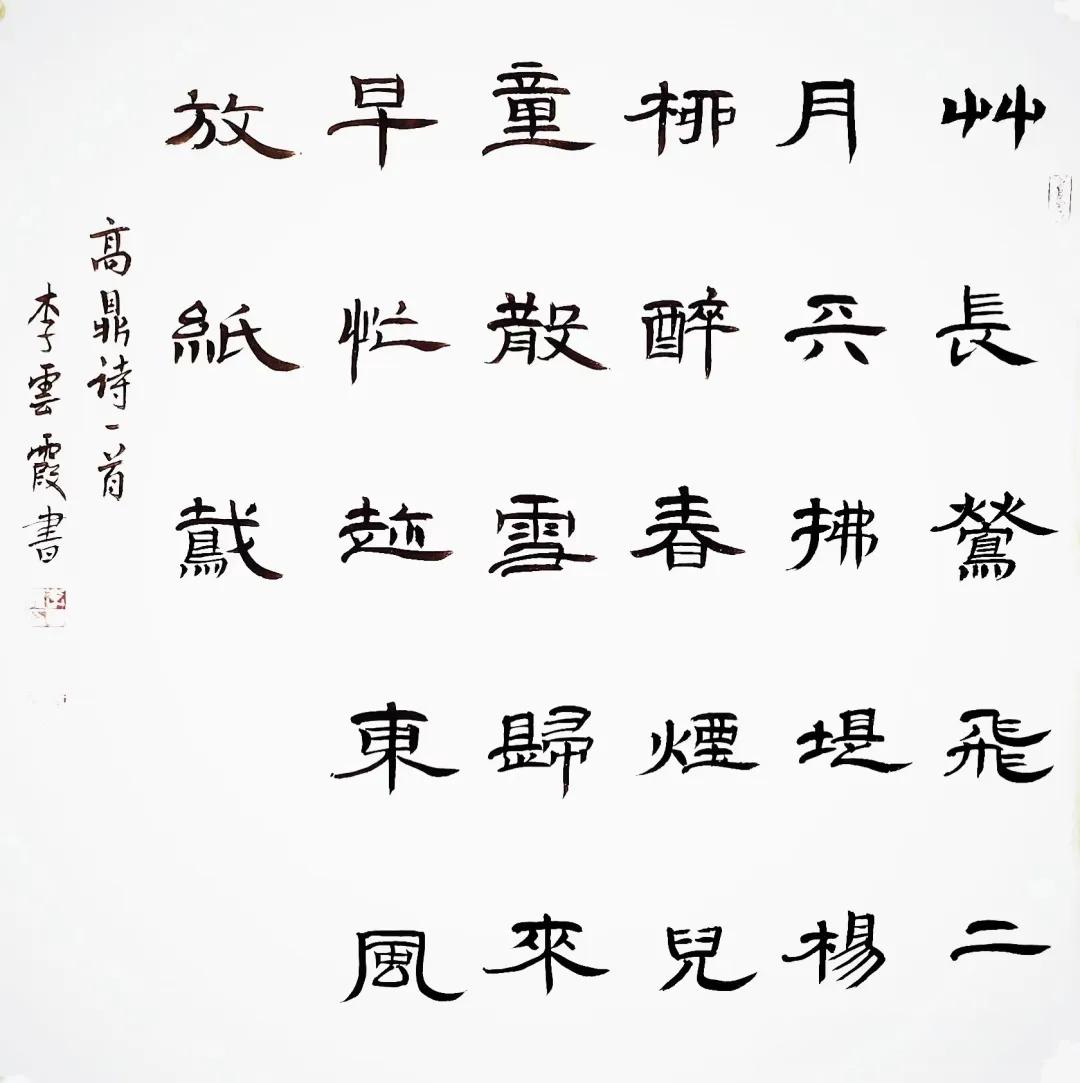 艸長鶯飛二
月兲拂堤楊
柳醉春煙兒
童散雪歸來
早忙趁東風
放紙鳶
高鼎诗一首
李雲霞書